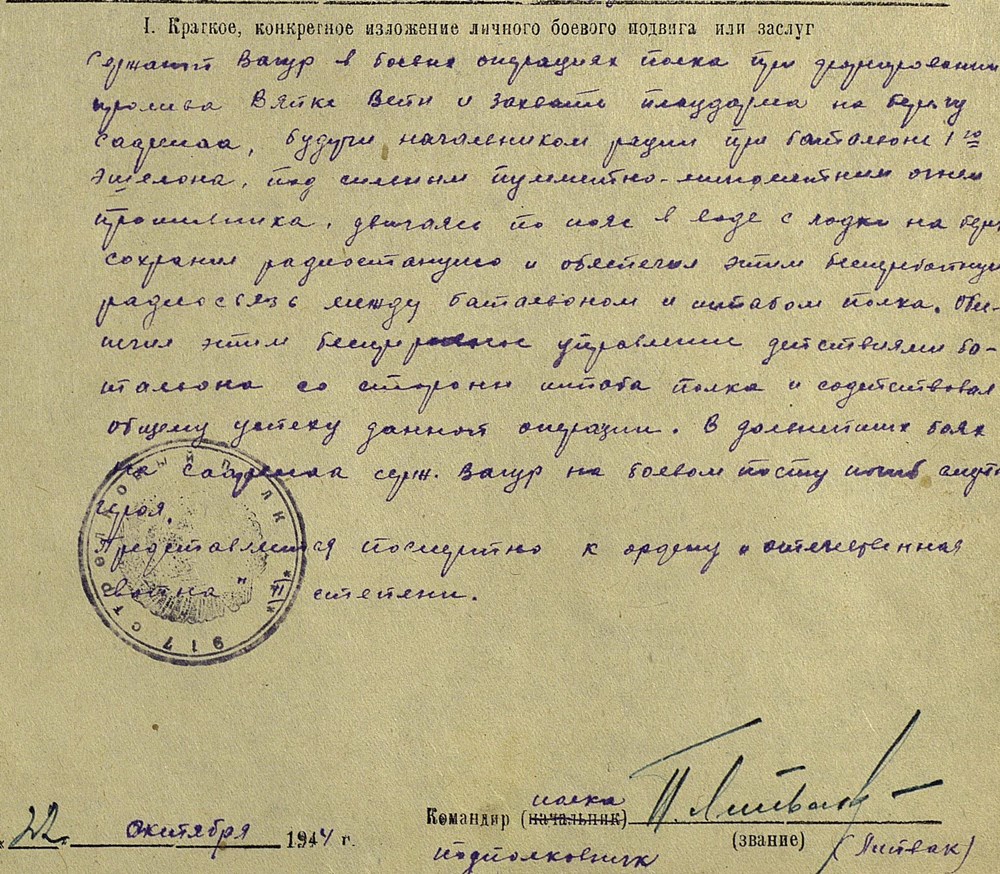 I. Краткое, конкретное изложение личного боевого подвига или заслуг
Сержант Вагур в боевых операциях полка при форсировании
пролива Вяйке Вейн и захвате плацдарма на берегу
Сааремаа, будучи начальником рации при батальоне 1го
эшелона, под сильным пулеметно-минометным огнем
противника, двигаясь по пояс в воде с лодки на бере
сохранил радиостанцию и обеспечил этим бесперебойную
радиосвязь между батальоном и штабом полка. Обес-
печил этим бесперерывное управление действиями ба-
тальона со стороны штаба полка и содействовал
общему успеху данной операции. В дальнейших боях
на Сааремаа серж. Вагур на боевом посту погиб смертью
героя.
Представляется посмертно к ордену „Отечественная
война" степени.
917 стрелковый полк
"22" октября 1944 г.
полка
Командир (начальник) П. Литвак
(звание) (Литвак)
подполковник